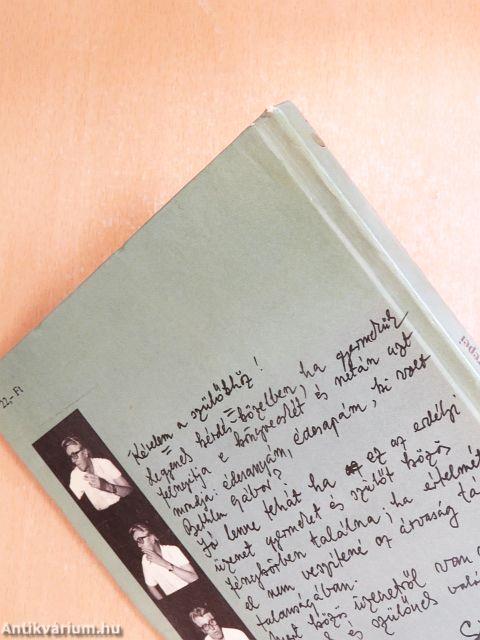 22,- Ft
Kérelem a szülőkhöz!
Legyenek kézül-közelben, ha gyermekük
fenyítja e könyvecskét és netán azt
mondja: édesanyám, édesapám, ki volt
Bethlen Gábor?
Jó lenne tehát ha ez az erdélyi
üzenet gyermeket és szülőt közös
fénykörben találna; ha értelmét
el nem veszítené az árvaság
talanságában.
közös üzenetről van
és szülőnek
Antikvárium.hu